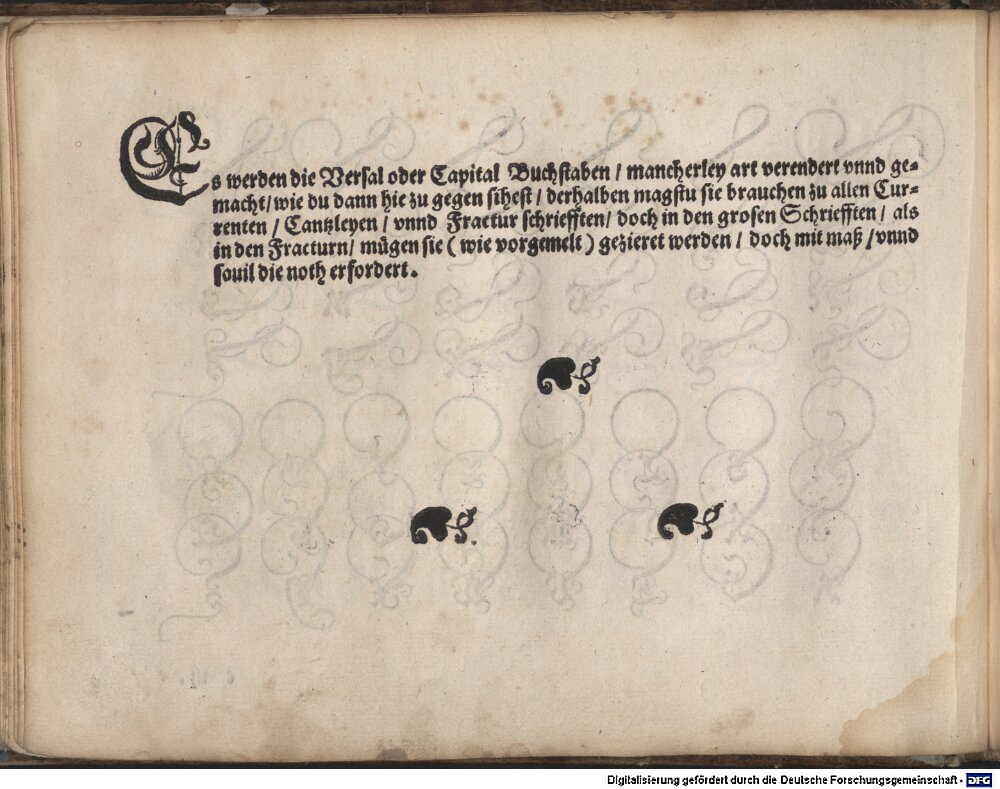 Es werden die Versal oder Capital Buchstaben / mancherley art verendert vnnd ge⸗
macht / wie du dann hie zu gegen sihest / derhalben magstu sie brauchen zu allen Cur⸗
renten / Cantzleyen / vnnd Fractur schriefften / doch in den grosen Schriefften / als
in den Fracturn / mügen sie ( wie vorgemelt ) gezieret werden / doch mit maß / vnnd
souil die noth erfordert.
Digitalisierung gefördert durch die Deutsche Forschungsgemeinschaft - DFG